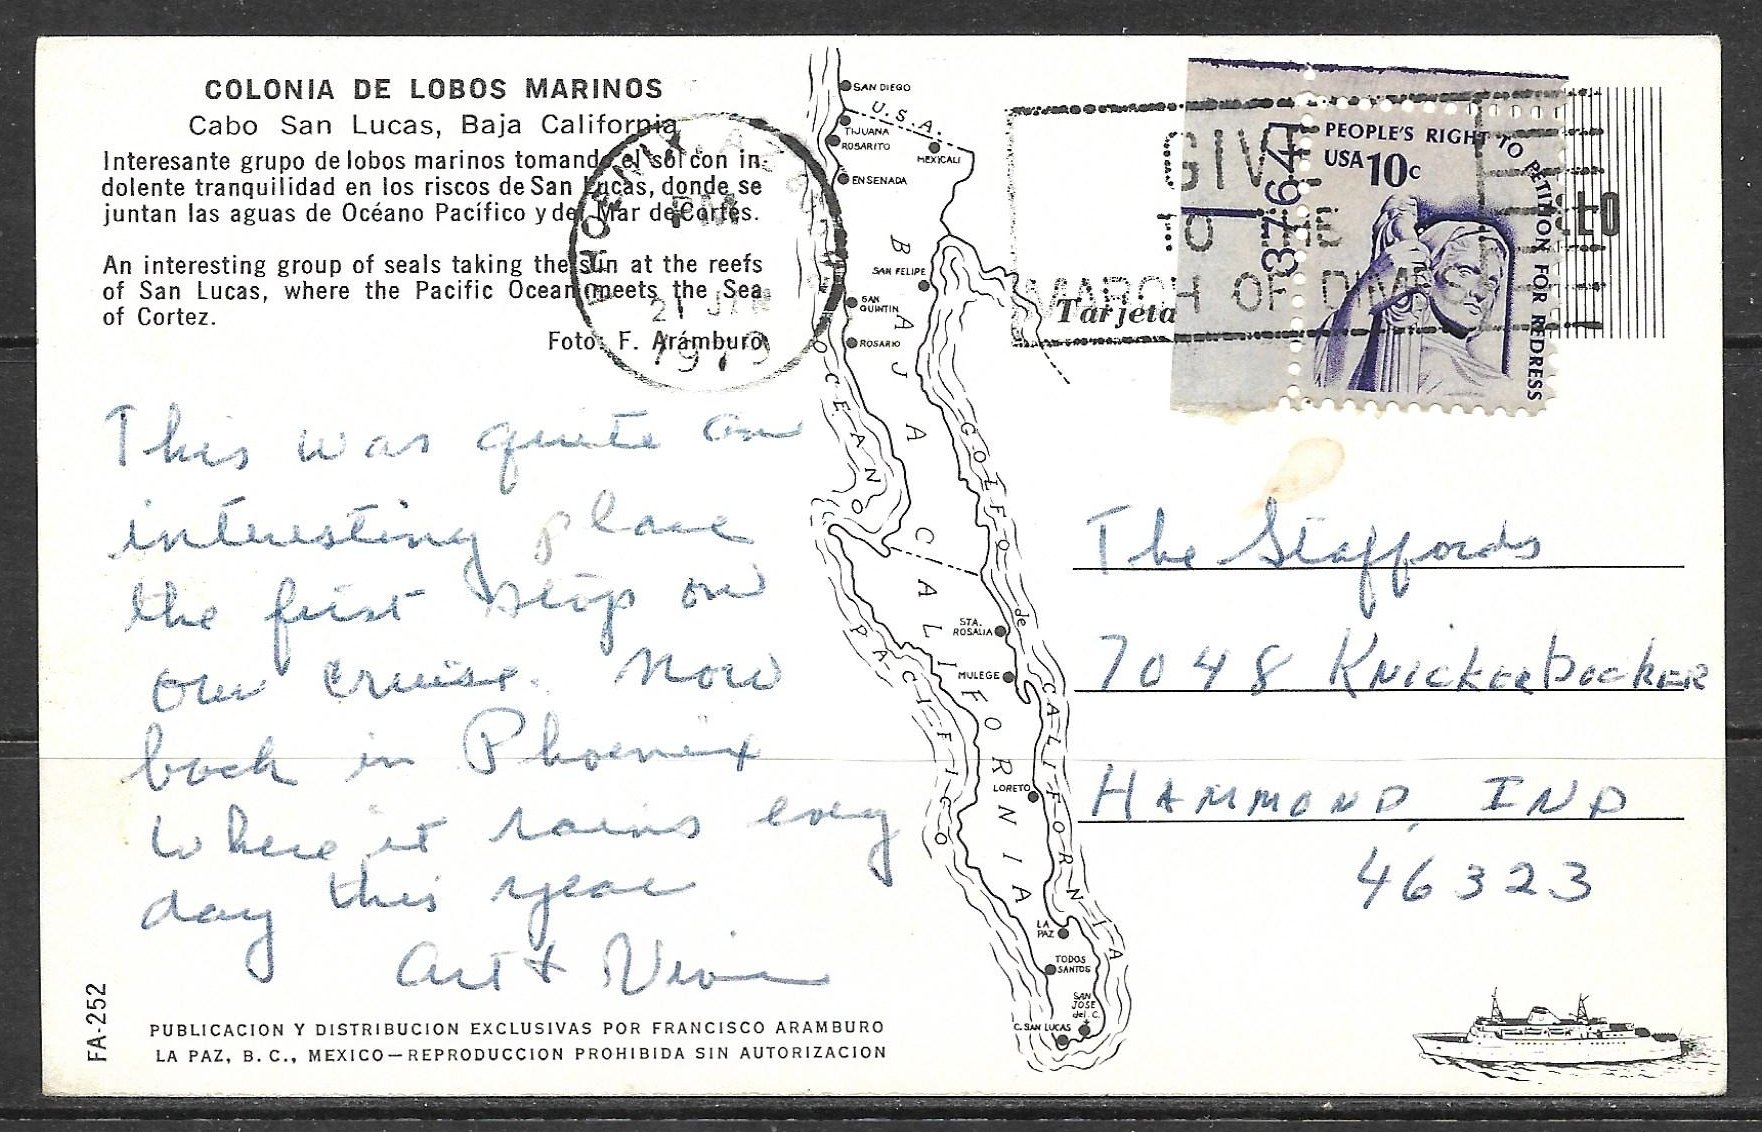 COLONIA DE LOBOS MARINOS
Cabo San Lucas, Baja California
Interesante grupo de lobos marinos tomando el sol con in-
dolente tranquilidad en los riscos de San Lucas, donde se
juntan las aguas de Océano Pacífico y del Mar de Cortés.
An interesting group of seals taking the sun at the reefs
of San Lucas, where the Pacific Ocean meets the Sea
of Cortez.
Foto: F. Arámburo
PHOENIX, A
PM
21 JAN
1979
This was quite an
interesting place
the first stop on
our cruise. Now
back in Phoenix
where it rains every
day this year
Art +
FA-252
PUBLICACION Y DISTRIBUCION EXCLUSIVAS POR FRANCISCO ARAMBURO
LA PAZ, B. C., MEXICO—REPRODUCCION PROHIBIDA SIN AUTORIZACION
SAN DIEGO
U.S.A.
TIJUANA
ROSARITO
MEXICALI
ENSENADA
SAN FELIPE
SAN
QUINTIN
ROSARIO
BAJA CALIFORNIA
OCEANO PACIFICO
GOLFO de CALIFORNIA
STA.
ROSALIA
MULEGE
LORETO
LA
PAZ
TODOS
SANTOS
SAN
JOSE
del C.
C. SAN LUCAS
GIVE
TO THE
MARCH OF DIMES
Tarjeta
37641
PEOPLE'S RIGHT TO PETITION FOR REDRESS
USA 10c
The Staffords
7048 KNICKERBOCKER
HAMMOND, IND
46323